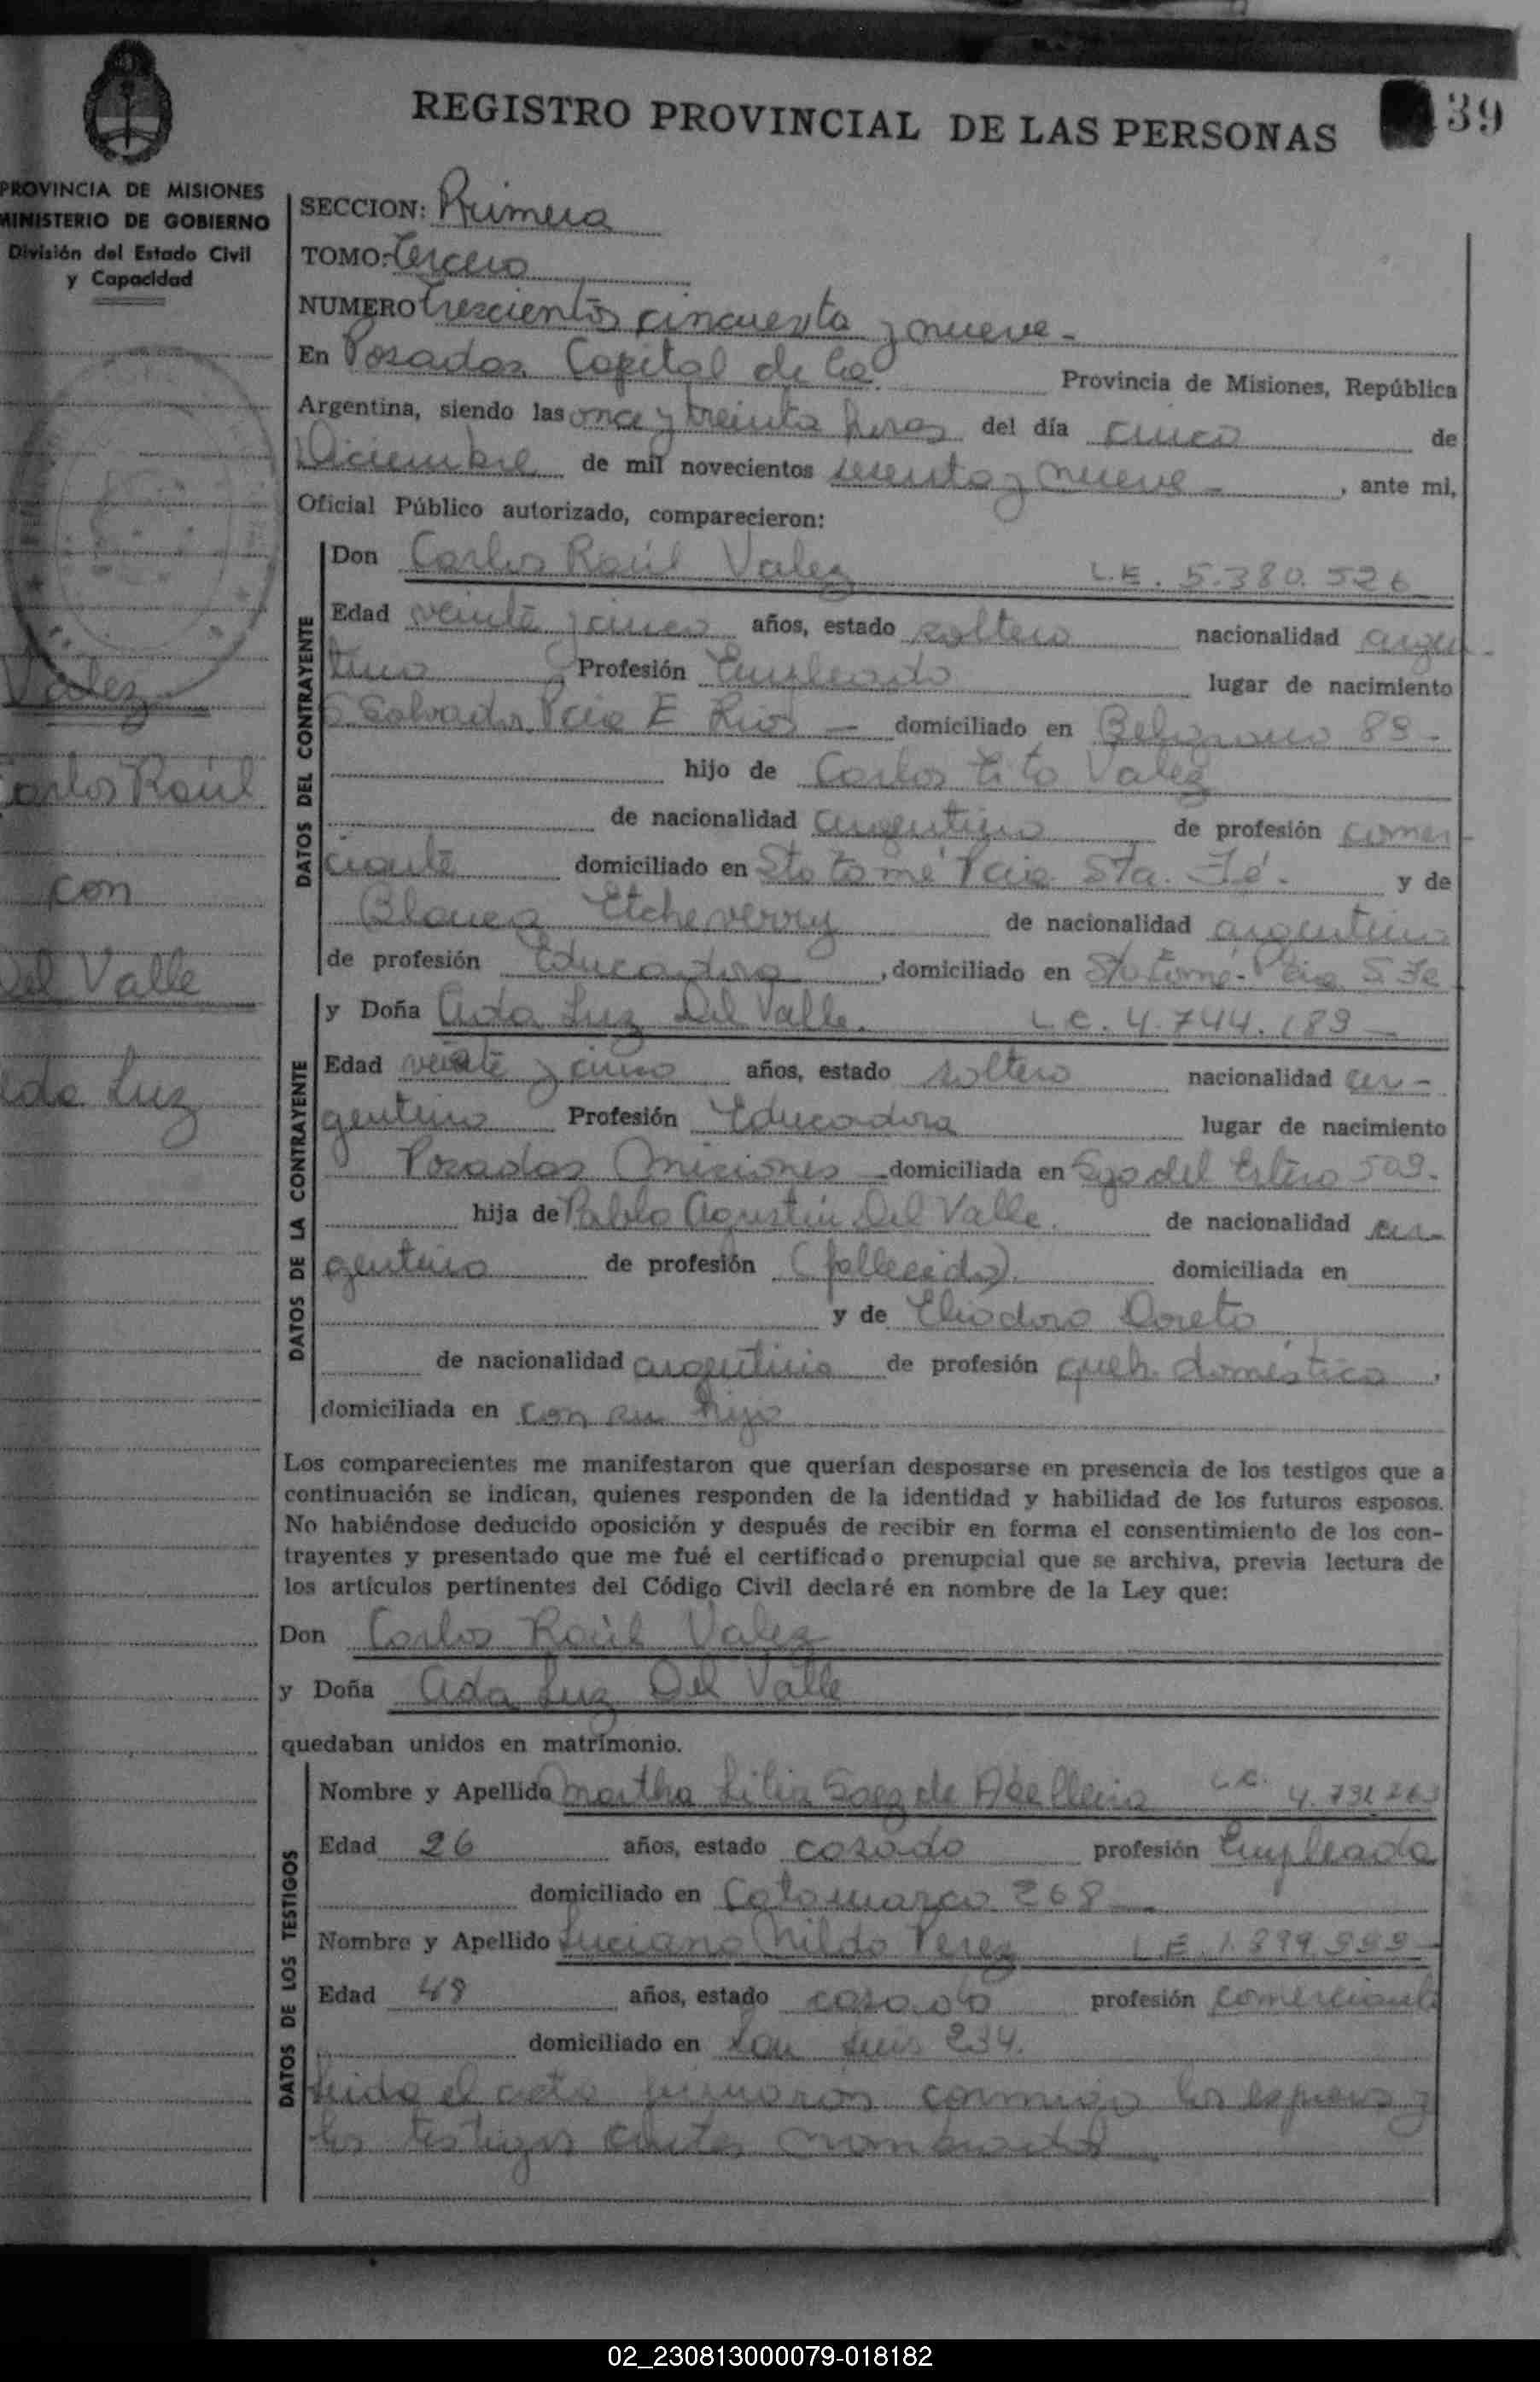 REGISTRO PROVINCIAL DE LAS PERSONAS
39
PROVINCIA DE MISIONES
MINISTERIO DE GOBIERNO
División del Estado Civil
y Capacidad
Valez
Carlos Raúl
con
Del Valle
Luz
SECCION: Primera
TOMO: Tercero
NUMERO trescientos cincuenta y nueve -
En Posadas Capital de la Provincia de Misiones, República
Argentina, siendo las once y treinta horas del día cinco de
Diciembre de mil novecientos sesenta y nueve - , ante mi,
Oficial Público autorizado, comparecieron:
DATOS DEL CONTRAYENTE
Don Carlos Raúl Valez L.E. 5.380.526
Edad veinte y cinco años, estado soltero nacionalidad argen-
tino Profesión Empleado lugar de nacimiento
S. Salvador Pcia E Rios - domiciliado en Belgrano 89 -
hijo de Carlos Tito Valez
de nacionalidad argentino de profesión comer-
ciante domiciliado en Sto tomé Pcia Sta. Fé. y de
Blanca Etcheverry de nacionalidad argentina
de profesión Educadora , domiciliado en Sto tomé - Pcia S. Fe
DATOS DE LA CONTRAYENTE
y Doña Ada Luz Del Valle. L.C. 4.744.189 -
Edad veinte y cinco años, estado soltera nacionalidad ar-
gentina Profesión Educadora lugar de nacimiento
Posadas Misiones - domiciliada en Sgo del Estero 509 -
hija de Pablo Agustín Del Valle. de nacionalidad ar-
gentino de profesión (fallecido). domiciliada en
y de Eliodora Loreto
de nacionalidad argentina de profesión queh. doméstico ,
domiciliada en con su hija
Los comparecientes me manifestaron que querían desposarse en presencia de los testigos que a
continuación se indican, quienes responden de la identidad y habilidad de los futuros esposos.
No habiéndose deducido oposición y después de recibir en forma el consentimiento de los con-
trayentes y presentado que me fué el certificado prenupcial que se archiva, previa lectura de
los artículos pertinentes del Código Civil declaré en nombre de la Ley que:
Don Carlos Raúl Valez
y Doña Ada Luz Del Valle
quedaban unidos en matrimonio.
DATOS DE LOS TESTIGOS
Nombre y Apellido Martha Lilia Saez de L.C.
Edad 26 años, estado casada profesión Empleada
domiciliado en Catamarca 268 -
Nombre y Apellido Luciano Nildo Perez L.E. 1.899.999 -
Edad 48 años, estado casado profesión comerciante
domiciliado en San Luis 234.
Leida el acta firmaron conmigo los esposos y
los testigos antes nombrados
02_230813000079-018182